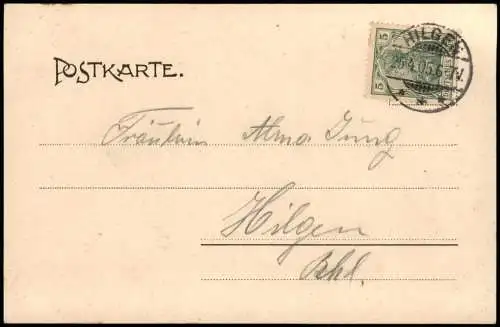 POSTKARTE.
HILGEN
25.4.05.6-7N.
5 5
Fräulein Alma Jung
Hilgen
Bhl.